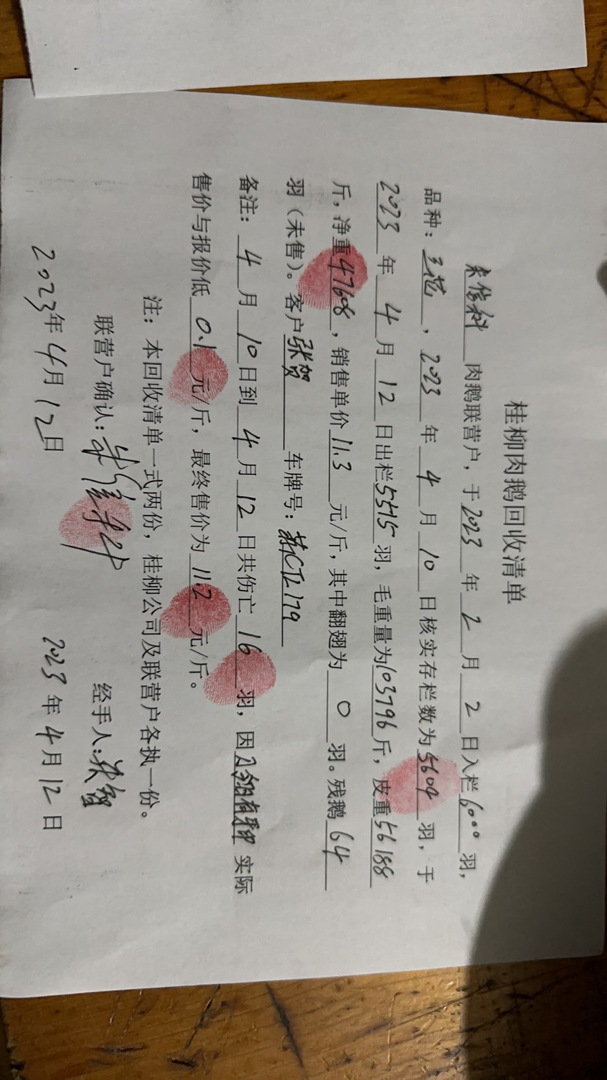 桂柳肉鹅回收清单
肉鹅联营户,于2023年2月2日入栏6000羽,
品种:三花,2023年4月10日核实存栏数为5604羽,于
2023年4月12日出栏5515羽,毛重量为103796斤,皮重56188
斤,净重47608,销售单价11.3元/斤,其中翻翅为0羽。残鹅64
羽(未售)。客户张贺 车牌号:苏CTL179
备注:4月10日到4月12日共伤亡16羽,因 实际
售价与报价低0.1元/斤,最终售价为11.2元/斤。
注:本回收清单一式两份,桂柳公司及联营户各执一份。
联营户确认: 经手人:
2023年4月12日 2023年4月12日